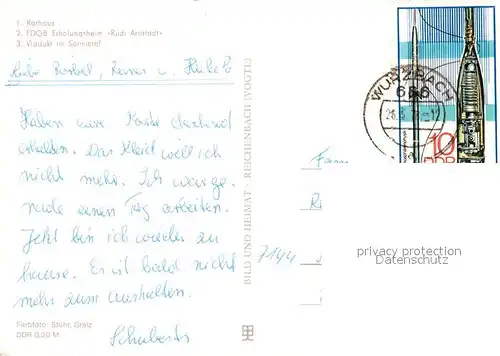 1. Rathaus
2. FDGB Erholungsheim »Rudi Arnstadt«
3. Viadukt im Sormitztal
Liebe Bärbel, Reiner u.
Haben eure Karte dankend
erhalten. Das Kleid will ich
nicht mehr. Ich war ge-
rade einen Tag arbeiten.
Jetzt bin ich wieder zu
hause. Es ist bald nicht
mehr zum aushalten.
Schuberts
Farbfoto: Stühr, Greiz
DDR 0,20 M
BILD UND HEIMAT · REICHENBACH (VOGTL)
WURZBACH
686
10
DDR
Fam
R
7144
privacy protection
Datenschutz